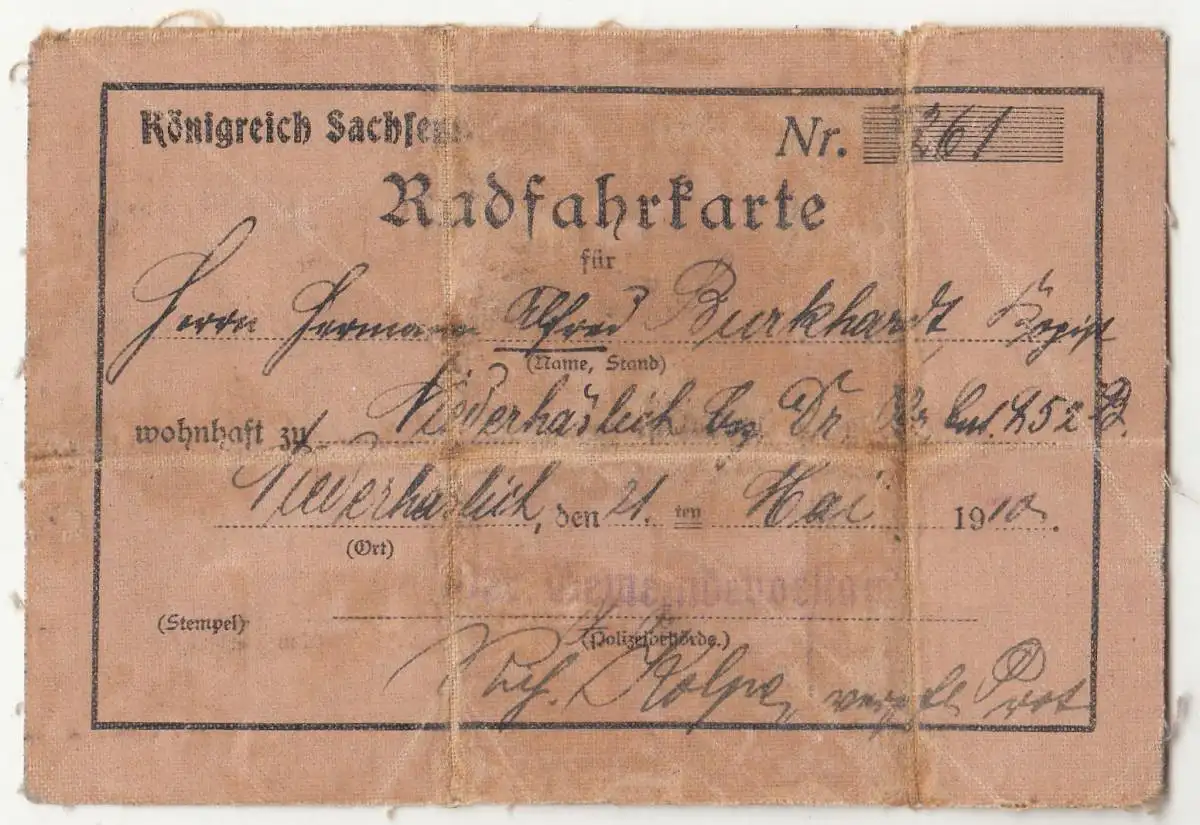 Königreich Sachsen.
Nr. 261
Radfahrkarte
für
Herrn Hermann Alfred Burkhardt,
(Name, Stand)
wohnhaft zu Niederhäslich bez. Dr.
Niederhäslich, den 21. ten Mai 1910.
(Ort)
Der Gemeindevorstand
(Stempel)
(Polizeibehörde.)